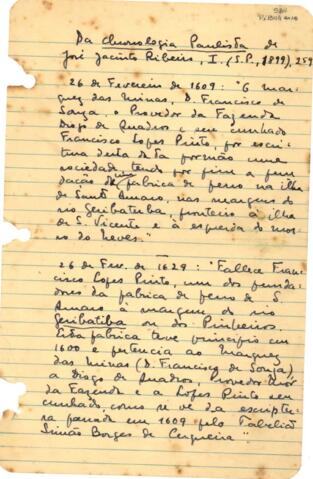 Da Chronologia Paulista de
José Jacinto Ribeiro, I. (S.P., 1899), 259
26 de Fevereiro de 1609: "O mar-
quez das Minas, D. Francisco de
Souza, o Provedor da Fazenda
Diogo de Quadros e seu cunhado
Francisco Lopes Pinto, por escri-
tura desta data formão uma
sociedade tendo por fim a fun-
dação de uma fabrica de ferro na ilha
de Santo Amaro, nas margens do
rio Geribatuba, fronteiro á ilha
de S. Vicente e á esquerda do mor-
ro do Neves."
26 de Fev. de 1629: "Fallece Fran-
cisco Lopes Pinto, um dos funda-
dores da fabrica de ferro de S.
Amaro á margem do rio
Geribatiba ou dos Pinheiros.
Esta fabrica teve principio em
1600 e pertencia ao Marquez
das Minas (D. Francisco de Souza),
a Diogo de Quadros, Provedor Mór
da Fazenda e a Lopes Pinto seu
cunhado, como se vê da escriptu-
ra passada em 1609 pelo Tabelião
Simão Borges de Cerqueira"